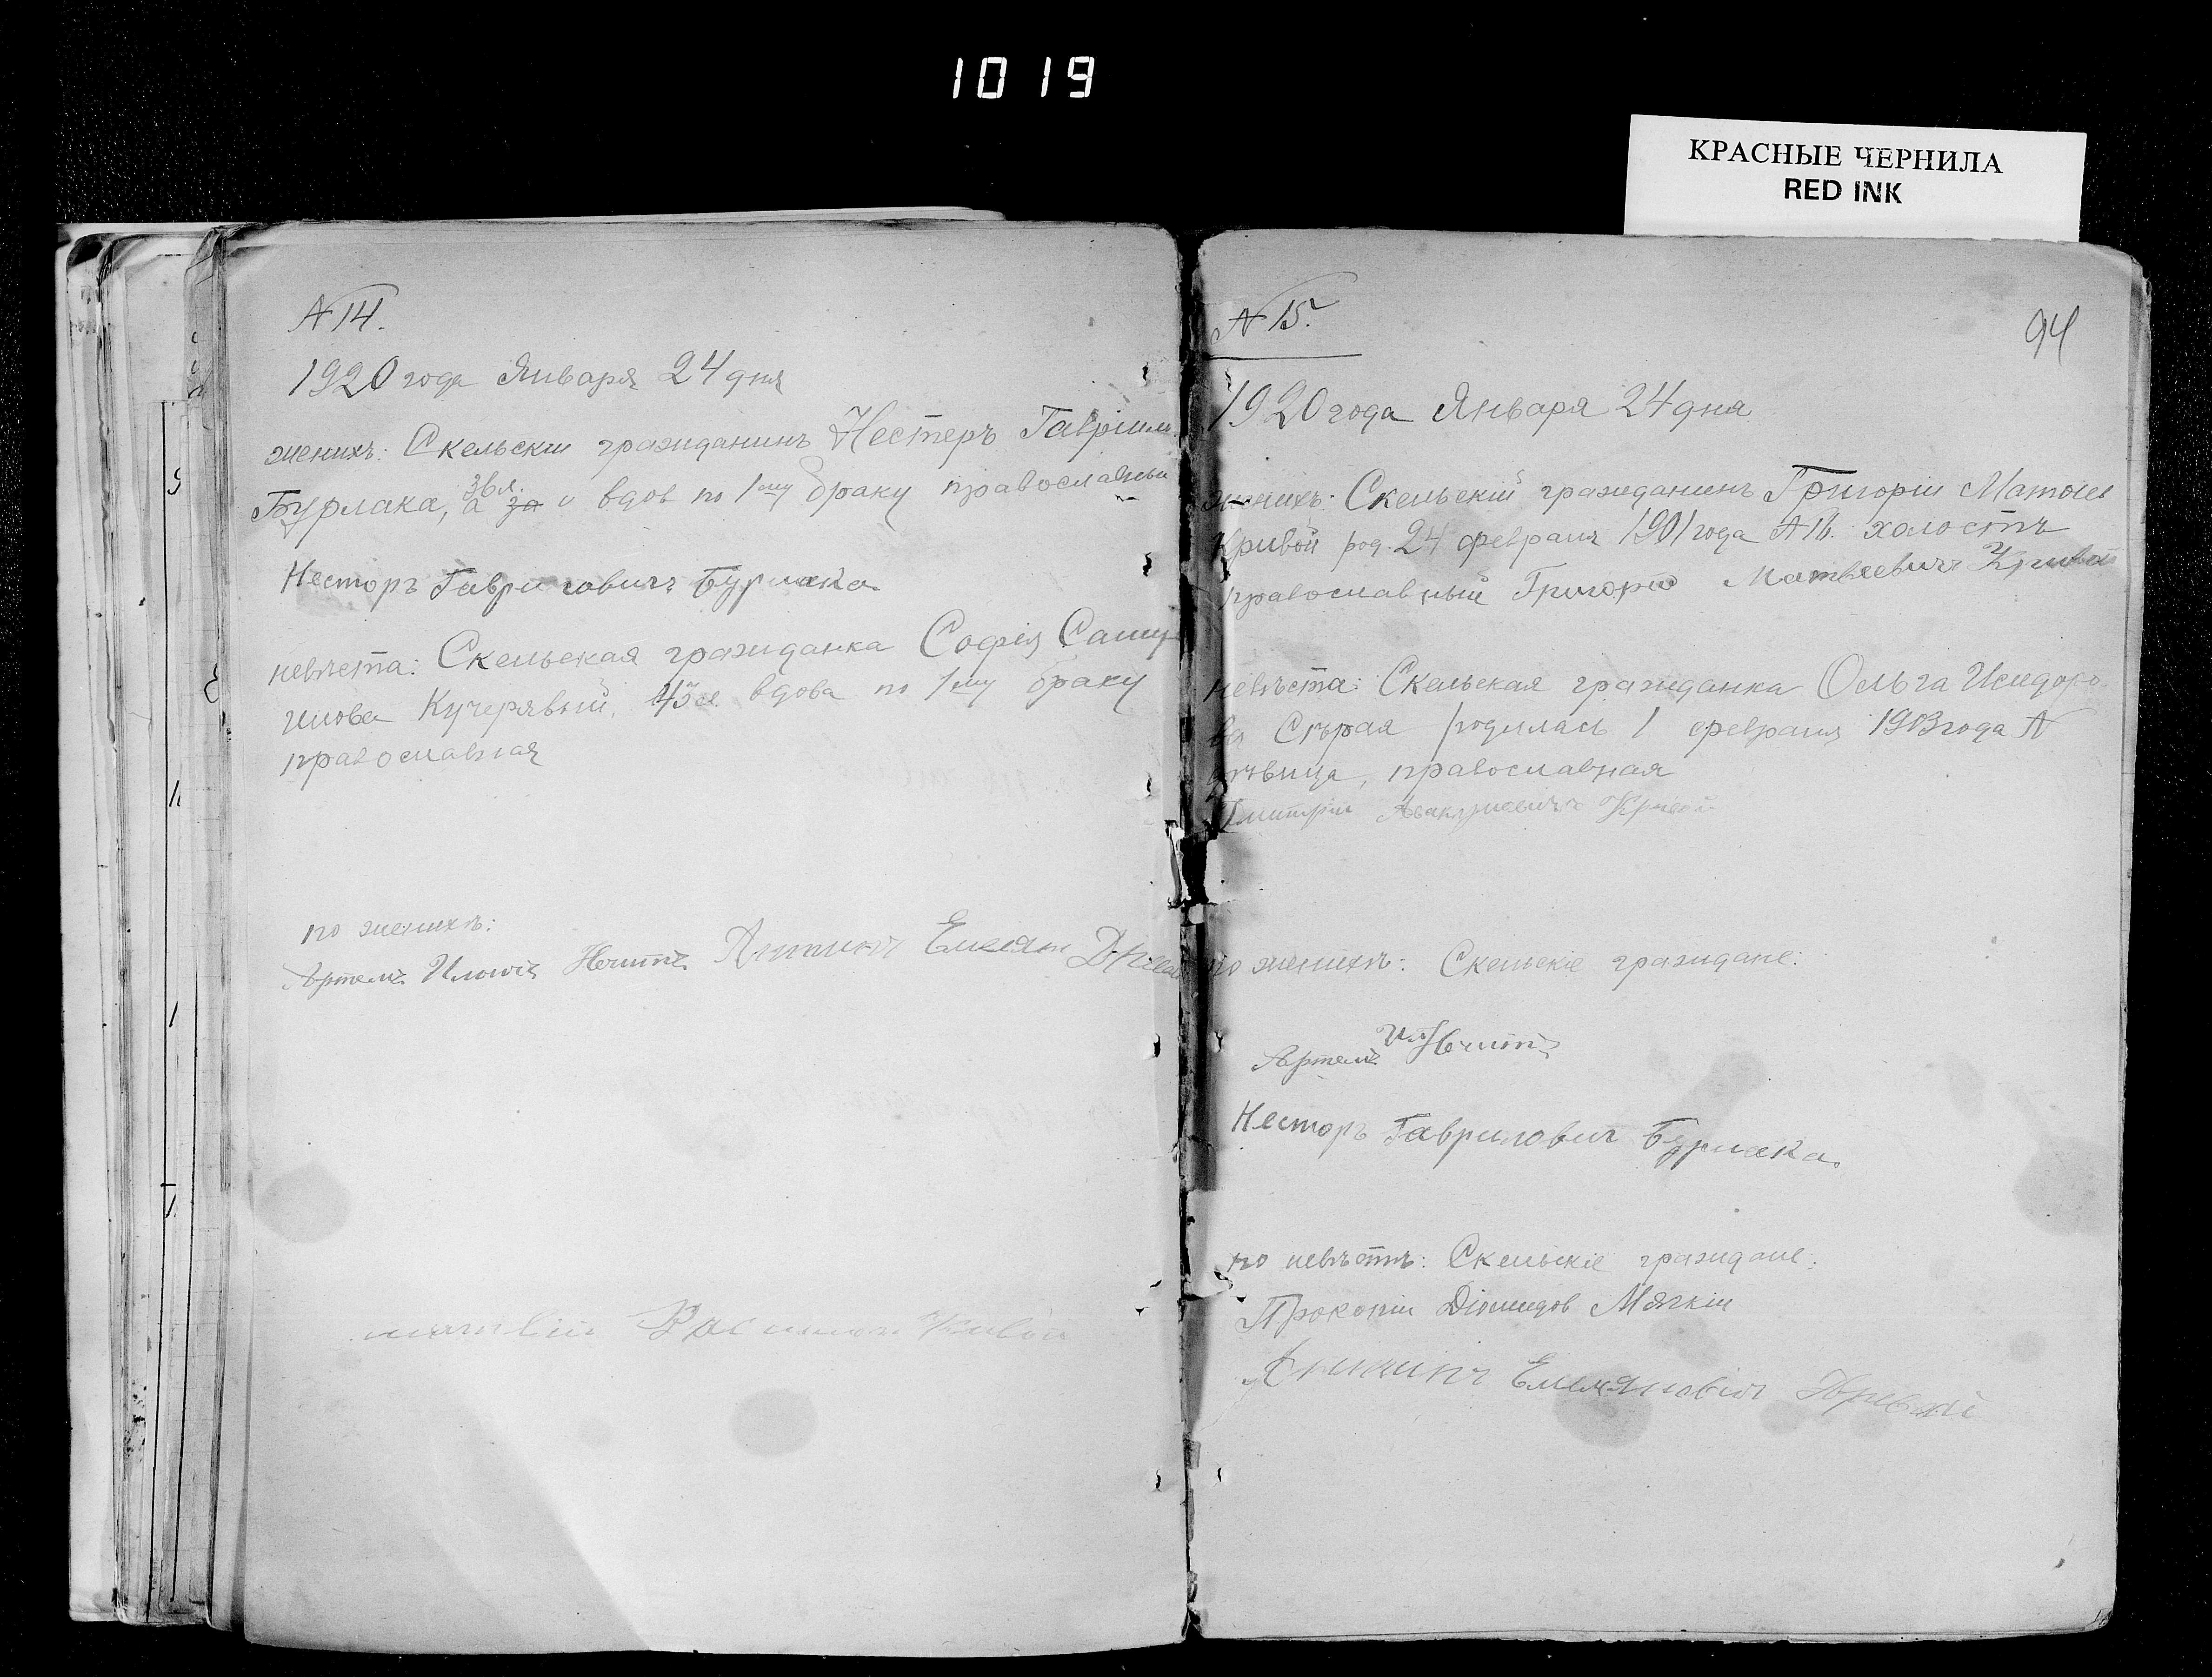 1019
КРАСНЫЕ ЧЕРНИЛА
RED INK
№ 14.
1920 года Января 24 дня
женихъ: Скельскій гражданинъ Нестеръ Гавріил
Бурлака, вдов по 1му браку православный
Несторъ Гаврилович Бурлака
невѣста: Скельская гражданка Софія Саму
илова Кучерявый, 45 л. вдова по 1му браку
православная
по женихѣ:
Артемъ Нечитъ Емелян
Кривой
№ 15.
94
1920 года Января 24 дня
женихъ: Скельскій гражданинъ Григорій Матвіев
Кривой род. 24 февраля 1901 года холостъ
православный Григорій Матвеевичъ Кривой
невѣста: Скельская гражданка Ольга Исидоро
ва Сѣрая родилась 1 февраля 1903 года №
дѣвица, православная
Дмитрій Кривой
по женихѣ: Скельскіе граждане:
Артемъ Ил Нечитъ
Несторъ Гаврилович Бурлака
по невѣстѣ: Скельскіе граждане:
Прокопій Діомидов Мягкій
Емельянович